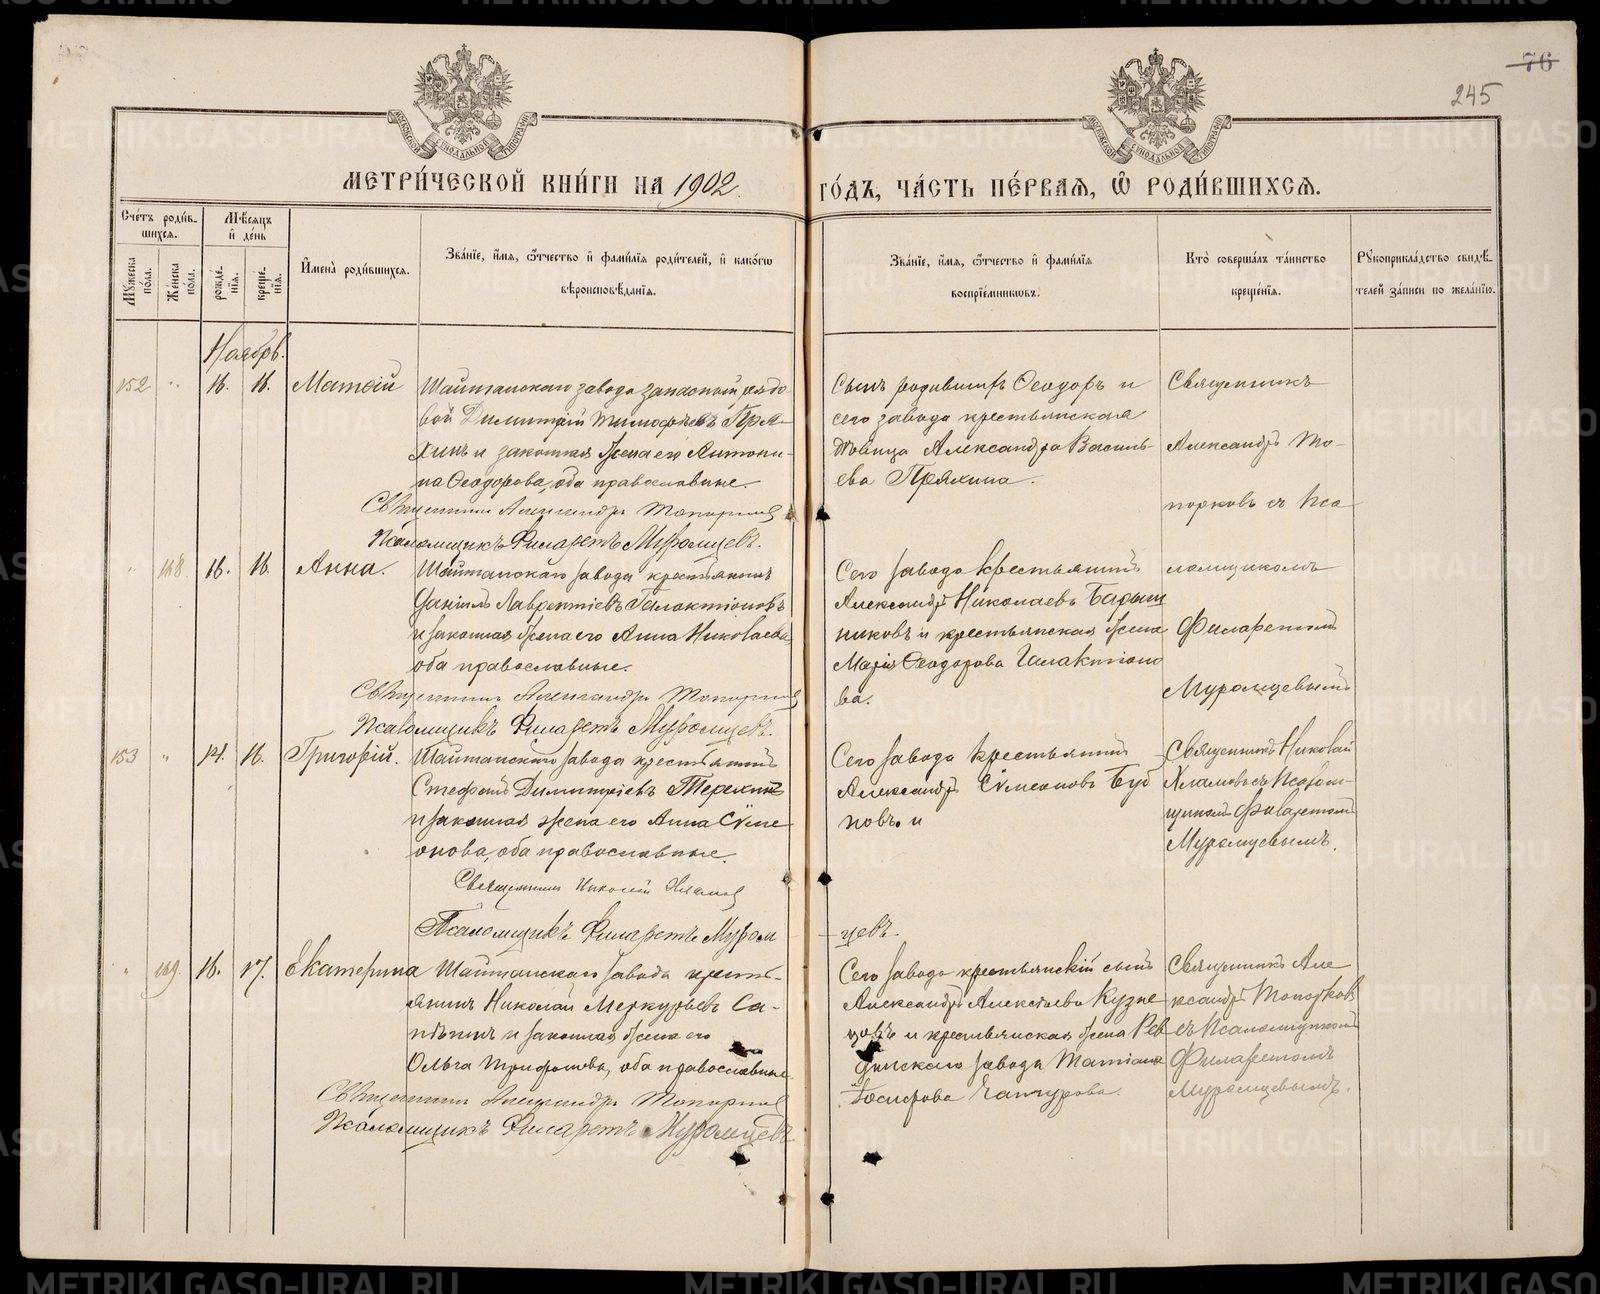 76
245
МОСКОВСКОЙ СѴНОДАЛЬНОЙ ТИПОГРАФІИ
МОСКОВСКОЙ СѴНОДАЛЬНОЙ ТИПОГРАФІИ
МЕТРИ́ЧЕСКОЙ КНИ́ГИ НА 1902 ГО́ДЪ, ЧА́СТЬ ПЕ́РВАѦ, Ѽ РОДИ́ВШИХСѦ.
Сче́тъ роди́в-
шихсѧ.
Мѣ́сяцъ
и де́нь
Мꙋ́жеска по́ла.
Же́нска по́ла.
рожде́нїѧ.
креще́нїѧ.
И҆мена̀ роди́вшихсѧ.
Зва́нїе, и҆́мѧ, ѻ҆́тчество и҆ фами́лїѧ роди́телей, и҆ како́гѡ
вѣроисповѣ́данїѧ.
Зва́нїе, и҆́мѧ, ѻ҆́тчество и҆ фами́лїѧ
воспрїе́мникѡвъ.
Кто̀ соверша́лъ та́инство
креще́нїѧ.
Рꙋкоприкла́дство свидѣ́-
телей за́писи по жела́нїю.
Ноябрь.
152 " 16. 16. Матѳій
Шайтанскаго завода запасный рядо-
вой Димитрій Тимофѣевъ Пря-
хинъ и законная жена его Антони-
на Ѳеодорова, оба православные.
Священникъ Александръ Топорковъ
Псаломщикъ Филаретъ Муромцевъ.
Сынъ родившихъ Ѳеодоръ и
сего завода крестьянская
дѣвица Александра Василь-
ева Пряхина.
Священникъ
Александръ То-
порковъ съ Пса-
ломщикомъ
Филаретомъ
Муромцевымъ
" 168. 16. 16. Анна.
Шайтанскаго завода крестьянинъ
Даніилъ Лаврентіевъ Галактіоновъ
и законная жена его Анна Николаева,
оба православные.
Священникъ Александръ Топорковъ
Псаломщикъ Филаретъ Муромцевъ.
Сего завода крестьянинъ
Александръ Николаевъ Барыш
никовъ и крестьянская жена
Марія Ѳеодорова Галактіоно
ва.
153 " 14. 16. Григорій.
Шайтанскаго завода крестьянинъ
Стефанъ Димитріевъ Терехинъ
и законная жена его Анна Сѵме-
онова, оба православные.
Священникъ Николай Хламовъ
Псаломщикъ Филаретъ Муром
цевъ.
Сего завода крестьянинъ
Александръ Сѵмеоновъ Буб
новъ. и
Священникъ Николай
Хламовъ съ Псалом-
щикомъ Филаретомъ
Муромцевымъ.
" 169. 16. 17. Екатерина
Шайтанскаго завода кресть-
янинъ Николай Меркурьевъ Са-
пѣгинъ и законная жена его
Ольга Трифонова, оба православные.
Священникъ Александръ Топорковъ
Псаломщикъ Филаретъ Муромцевъ
Сего завода крестьянскій сынъ
Александръ Алексѣевъ Кузне
цовъ и крестьянская жена Рев
динскаго завода Татіана
Іосифова
Священникъ Але
ксандръ Топорковъ
съ Псаломщикомъ
Филаретомъ
Муромцевымъ.
METRIKI.GASO-URAL.RU